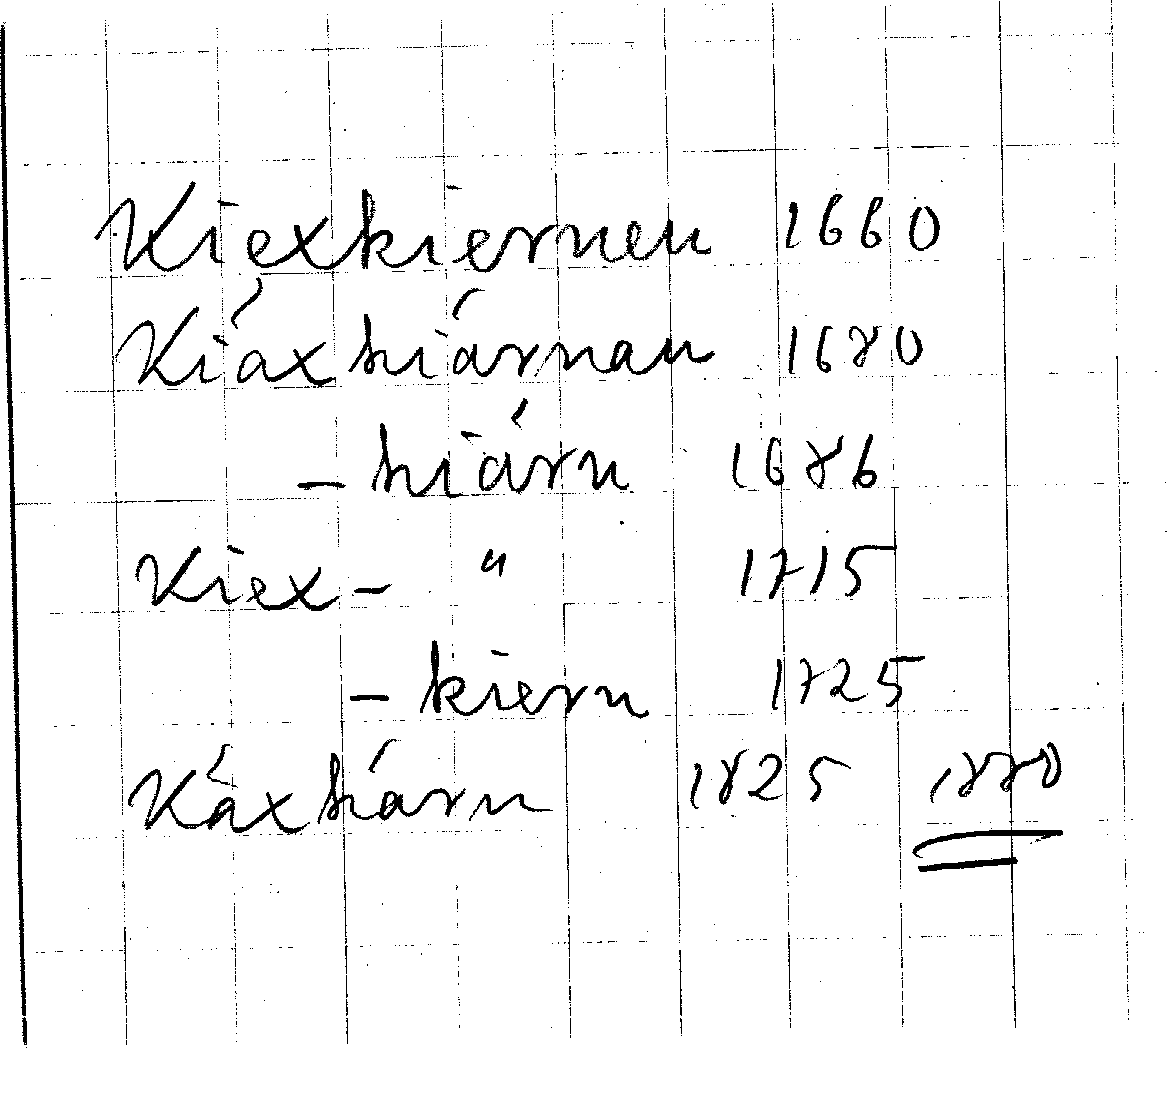 Kiexkiernen 1660
Kiáxkiárnan 1680
- kiárn 1686
Kiex- " 1715
- kiern 1725
Káxkárn 1825 1880